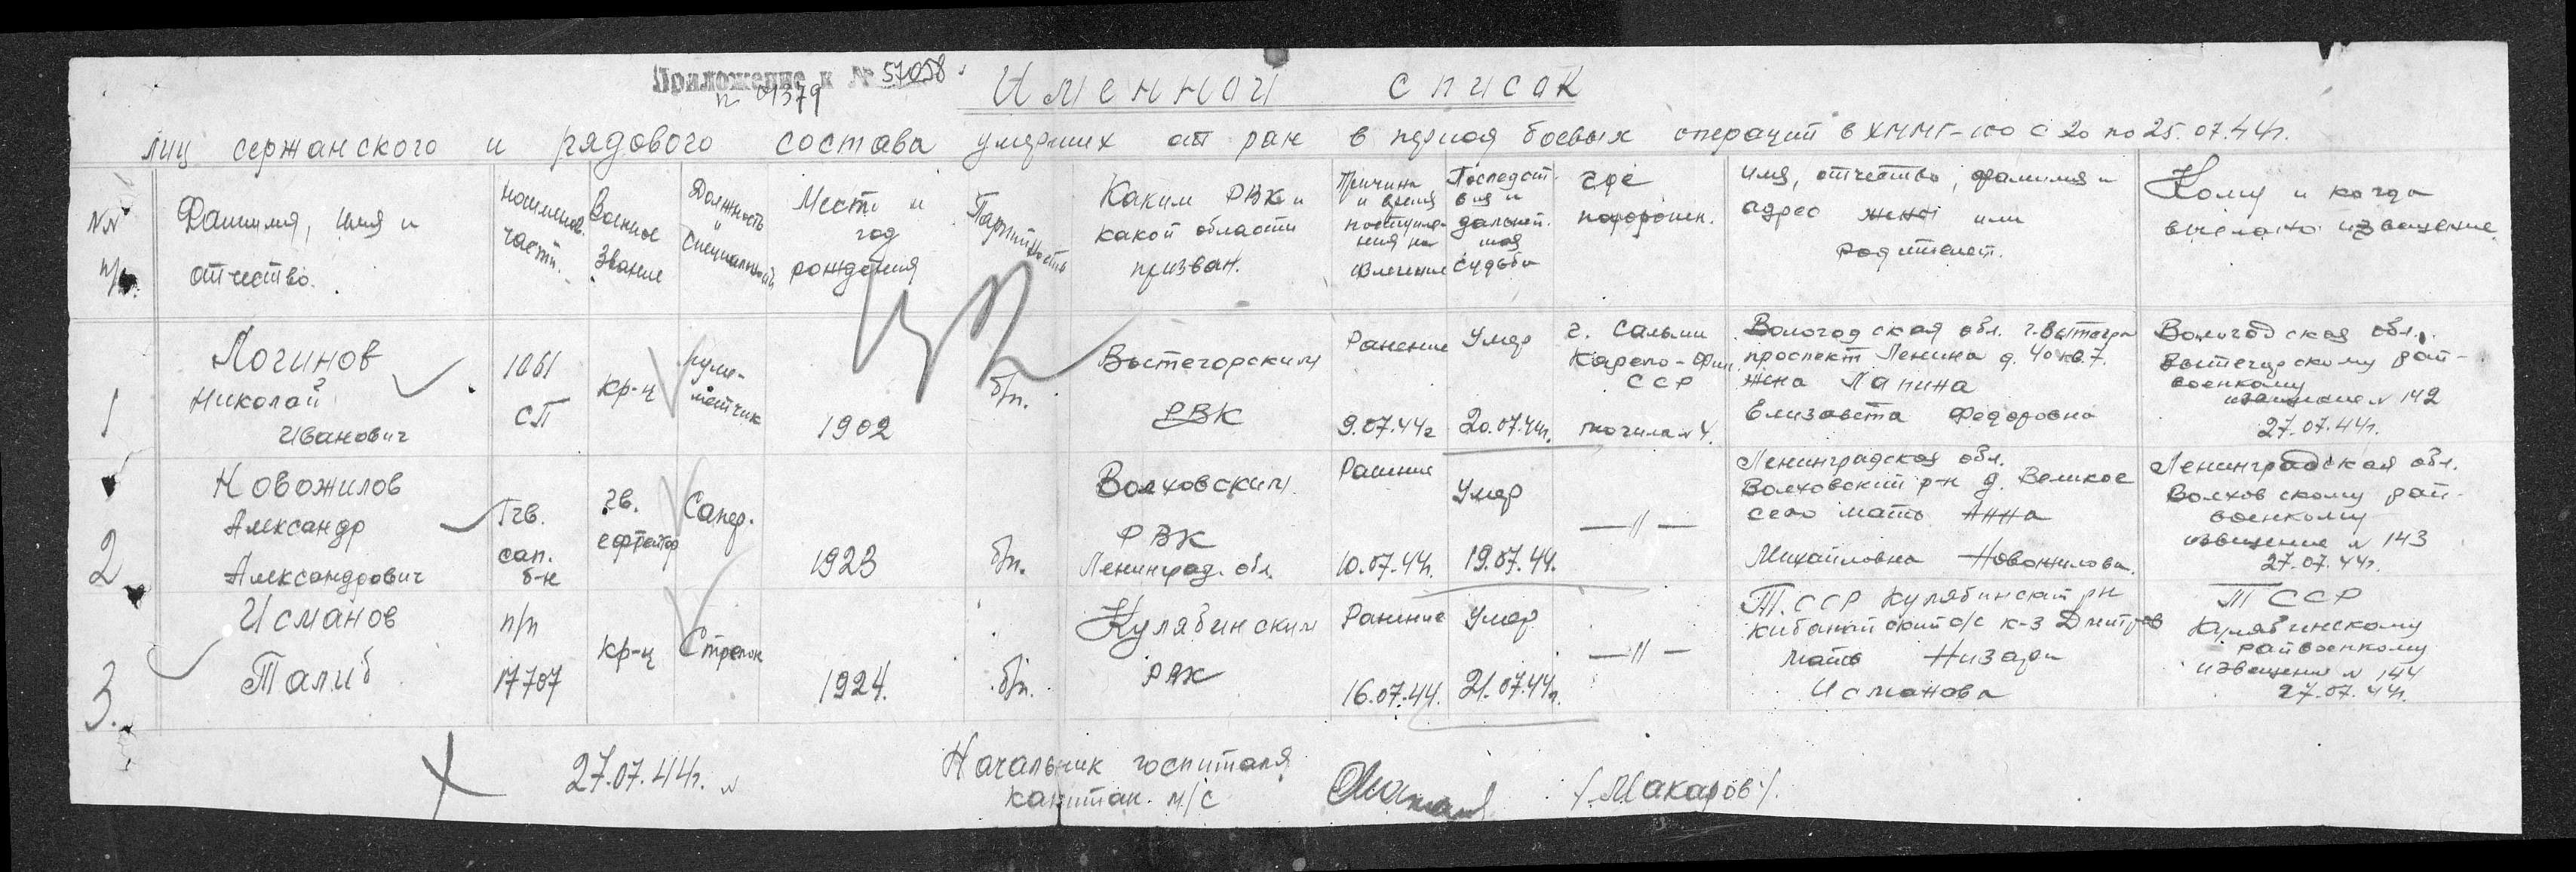 Приложение к № 57058
n 01379
Именной список
лиц сержанского и рядового состава умерших от ран в период боевых операций в ХММГ-100 с 20 по 25.07.44г.
NN п/п.
Фамилия, имя и отчество.
наименов. части.
Военное звание
Должность и специальность
Место и год рождения
Партийность
Каким РВК и какой области призван.
Причина и время поступления на излечение
Последствия и дальнейшая судьба
где похоронен.
имя, отчество, фамилия и адрес жены или родителей.
Кому и когда выслано извещение
1
Логинов
Николай
Иванович
1061
СП
кр-ц
пуле-
метчик
1902
б/п.
Вытегорским
РВК
Ранение
9.07.44г
Умер
20.07.44г.
г. Сальми
Карело-Фин.
ССР
могила N 4.
Вологодская обл. г. Вытегра
проспект Ленина д. 40 кв. 7.
жена Лапина
Елизавета Федоровна
Вологодская обл.
Вытегорскому рай-
военкому
извещение N 142
27.07.44г.
2
Новожилов
Александр
Александрович
гв.
сап.
б-н
гв.
ефрейтор
Сапер.
1923
б/п.
Волховским
РВК
Ленинград. обл.
Ранение
10.07.44г.
Умер
19.07.44.
—〃—
Ленинградская обл.
Волховский р-н д. Великое
село мать Анна
Михайловна Новожилова.
Ленинградская обл.
Волховскому рай-
военкому
извещение N 143
27.07.44г.
3.
Исманов
Талиб
п/п
17707
кр-ц
Стрелок
1924.
б/п.
Кулябинским
РВК
Ранение
16.07.44.
Умер
21.07.44г.
—〃—
Т.ССР Кулябинский рн
с/с к-з Дмитров
мать Низари
Исманова
Т ССР
Кулябинскому
райвоенкому
извещение N 144
27.07.44г.
27.07.44г.
Начальник госпиталя
капитан м/с
/Макаров/.